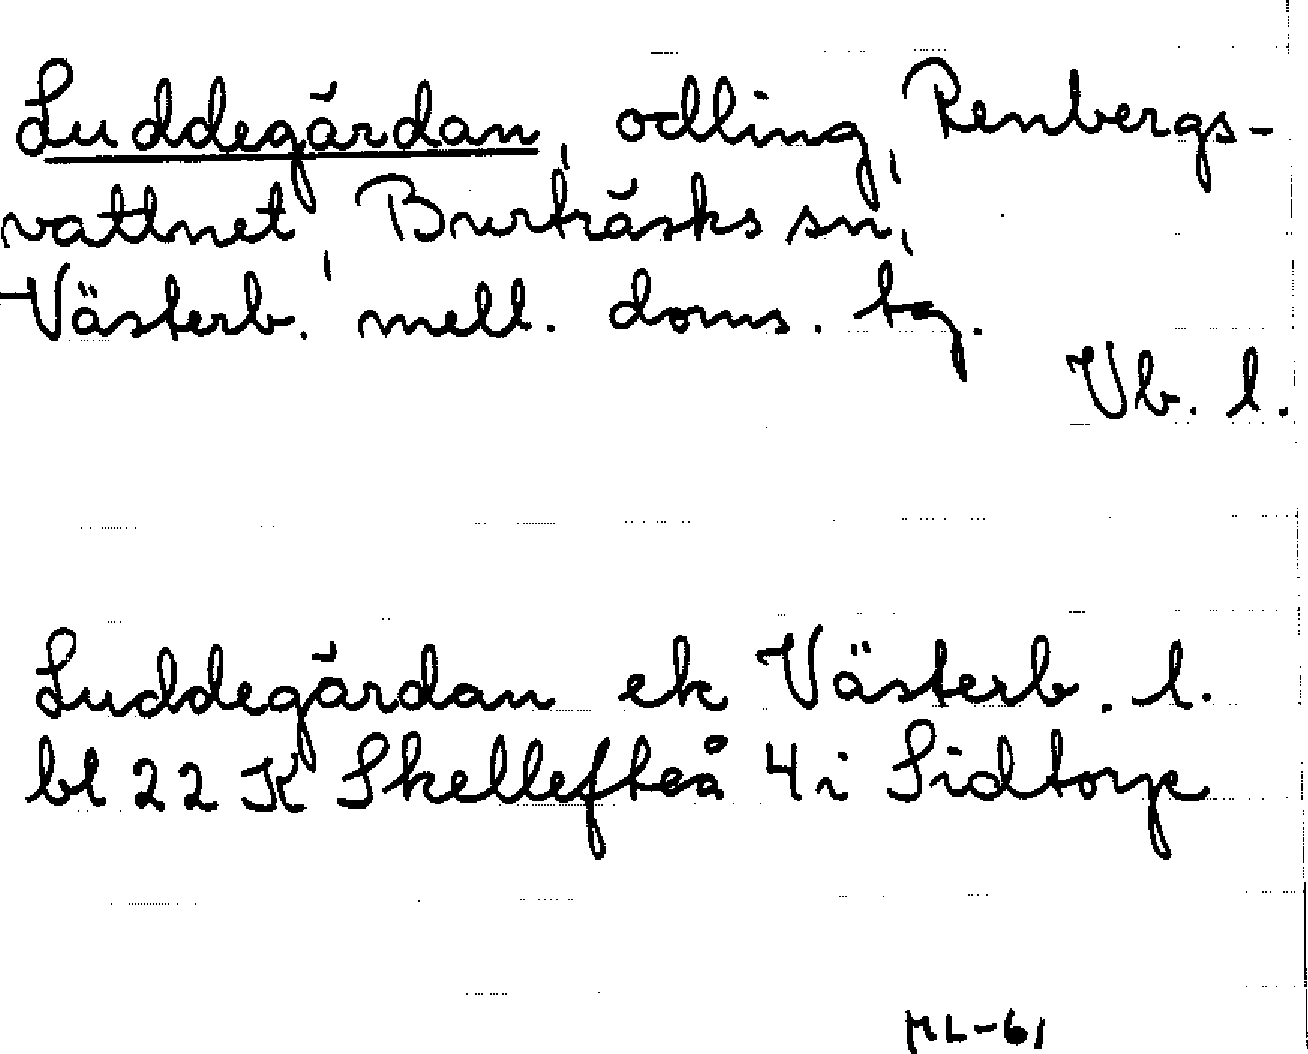 Luddegårdan, odling, Renbergs-
vattnet, Burträsks sn,
Västerb. mell. doms. tg.
Vb. l.
Luddegårdan ek Västerb. l.
bl 22 K Skellefteå 4i Sidtorp
ML-61